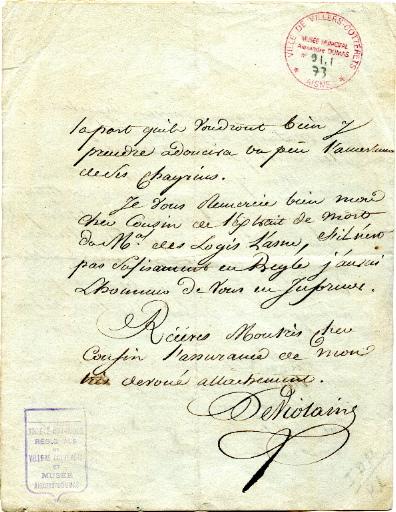 VILLE DE VILLERS-COTTERETS
MUSÉE MUNICIPAL
Alexandre DUMAS
N° 91.1
73
AISNE
la part qu'ils voudront bien y
prendre adoucira un peu l'amertume
de ses chagrins.
Je vous Remercie bien mon
cher Cousin de l'extrait de mort
du M.al des Logis Lasne, s'il n'est
pas Sufisament en Regle j'aurai
L'honneur de vous en Informer.
Mon cher
Cousin l'assurance de mon
très devoué attachement.
DeViolaine
VILLERS COTTERETS
ET
MUSEE
ALEXANDRE DUMAS